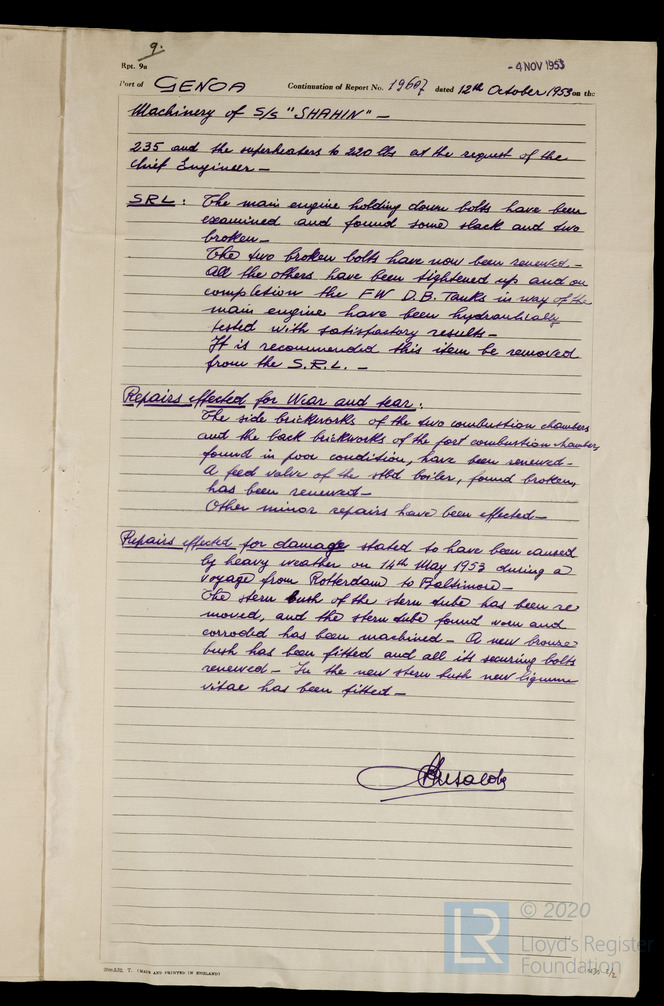 9.
Rpt. 9a
- 4 NOV 1953
Port of GENOA Continuation of Report No. 19607 dated 12th October 1953 on the
Machinery of S/S "SHAHIN" —
235 and the superheaters to 220 lbs at the request of the
Chief Engineer —
SRL : The main engine holding down bolts have been
examined and found some slack and two
broken —
The two broken bolts have now been renewed. —
All the others have been tightened up and on
completion the FW D.B. Tanks in way of the
main engine have been hydraulically
tested with satisfactory results —
It is recommended this item be removed
from the S.R.L. —
Repairs effected for Wear and tear :
The side brickworks of the two combustion chambers
and the back brickworks of the port combustion chamber,
found in poor condition, have been renewed —
A feed valve of the stbd boiler, found broken,
has been renewed —
Other minor repairs have been effected —
Repairs effected for damage stated to have been caused
by heavy weather on 14th May 1953 during a
voyage from Rotterdam to Baltimore —
The stern bush of the stern tube has been re
moved, and the stern tube found worn and
corroded has been machined — A new bronze
bush has been fitted and all its securing bolts
renewed — In the new stern bush new lignum
vitae has been fitted —
T. (MADE AND PRINTED IN ENGLAND)
LR © 2020
Lloyd's Register
Foundation